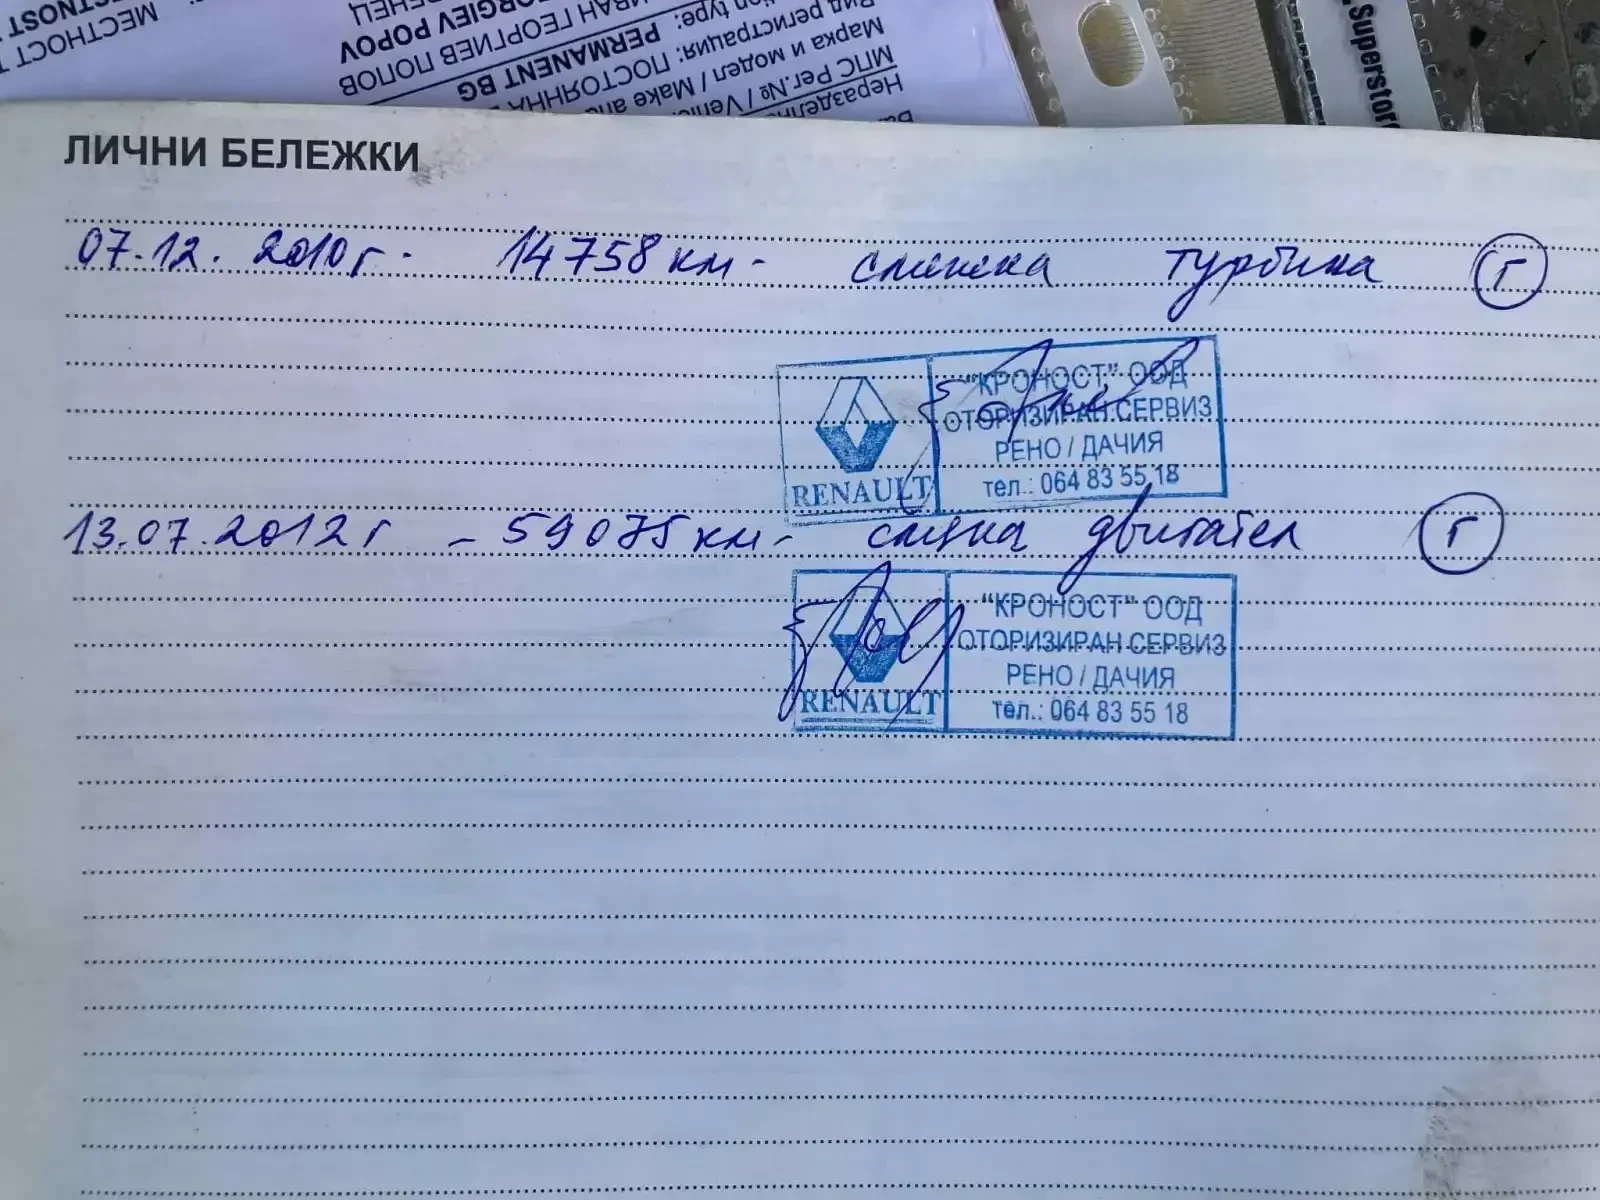 МЕСТНОСТ Т
ИВАН ГЕОРГИЕВ ПОПОВ
ORGIEV POPOV
PERMANENT BG
Вид регистрация: ПОСТОЯННА
Марка и модел / Make an
МПС Рег.№ / Vehic
Superstore
ЛИЧНИ БЕЛЕЖКИ
07.12.2010г. 14758км - смяна турбина Г
"КРОНОСТ" ООД
ОТОРИЗИРАН СЕРВИЗ
РЕНО / ДАЧИЯ
тел.: 064 83 55 18
RENAULT
13.07.2012г - 59075км - смяна двигател Г
"КРОНОСТ" ООД
ОТОРИЗИРАН СЕРВИЗ
РЕНО / ДАЧИЯ
тел.: 064 83 55 18
RENAULT